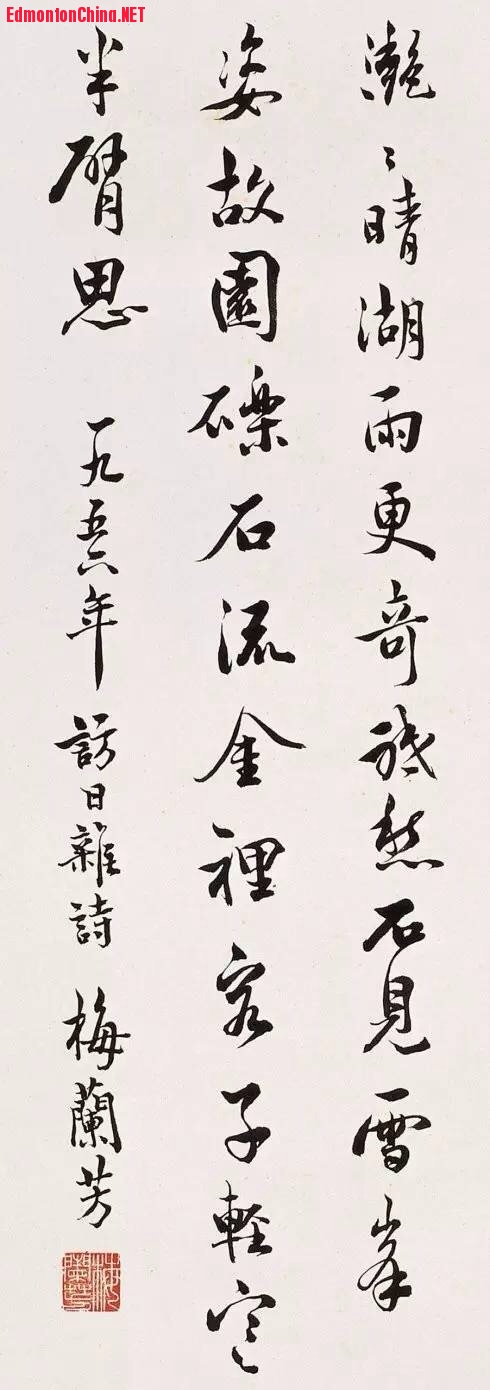 EdmontonChina.NET
灧〻晴湖雨更奇祗愁不見雪峯
姿故園礫石流金裡客子輕寒
半臂思 一九五六年 訪日雜詩 梅蘭芳